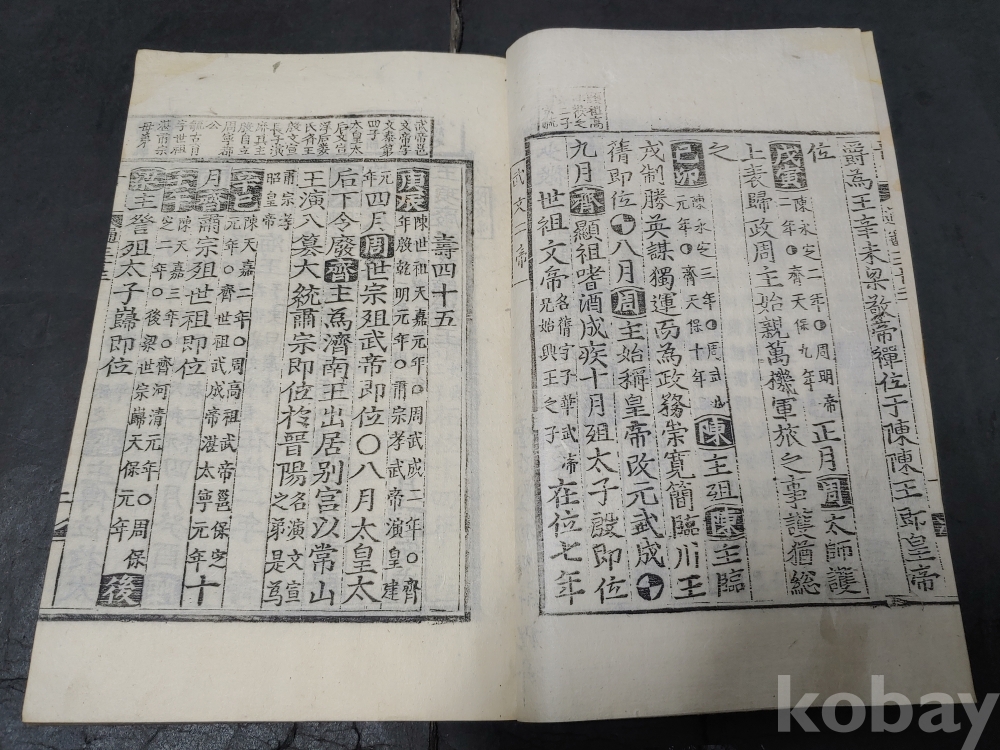 爵為王辛未梁敬帝禪位于陳陳王即皇帝
位
戊寅
陳永定二年○周明帝
二年○齊天保九年
正月周太師護
上表歸政周主始親萬機軍旅之事護猶總
之
己卯
陳永定三年○周武
元年○齊天保十年
陳主殂陳主臨
戎制勝英謀獨運而為政務崇寬簡臨川王
蒨即位八月周主始稱皇帝改元武成
九月齊顯祖嗜酒成疾十月殂太子殷即位
世祖文帝
名蒨字子華武帝
兄始興王之子
在位七年
武文二帝
壽四十五
庚辰
陳世祖天嘉元年○周武成二年○齊
年殷乾明元年○肅宗孝武帝演皇建
元
年
四月周世宗殂武帝即位○八月太皇太
后下令廢齊主為濟南王出居別宮以常山
王演入纂大統肅宗即位於晉陽
名演文宣
之弟是為
肅宗孝
昭皇帝
辛巳
陳天嘉二年○周高祖武帝邕保定
元年○齊世祖武成帝湛太寧元年
十
月齊肅宗殂世祖即位
壬午
陳天嘉三年○齊河清元年○周保
定二年○後梁世宗巋天保元年
後
梁主詧殂太子巋即位
武帝邕
文帝字
文泰第
四子
太皇太
后文宣
kobay